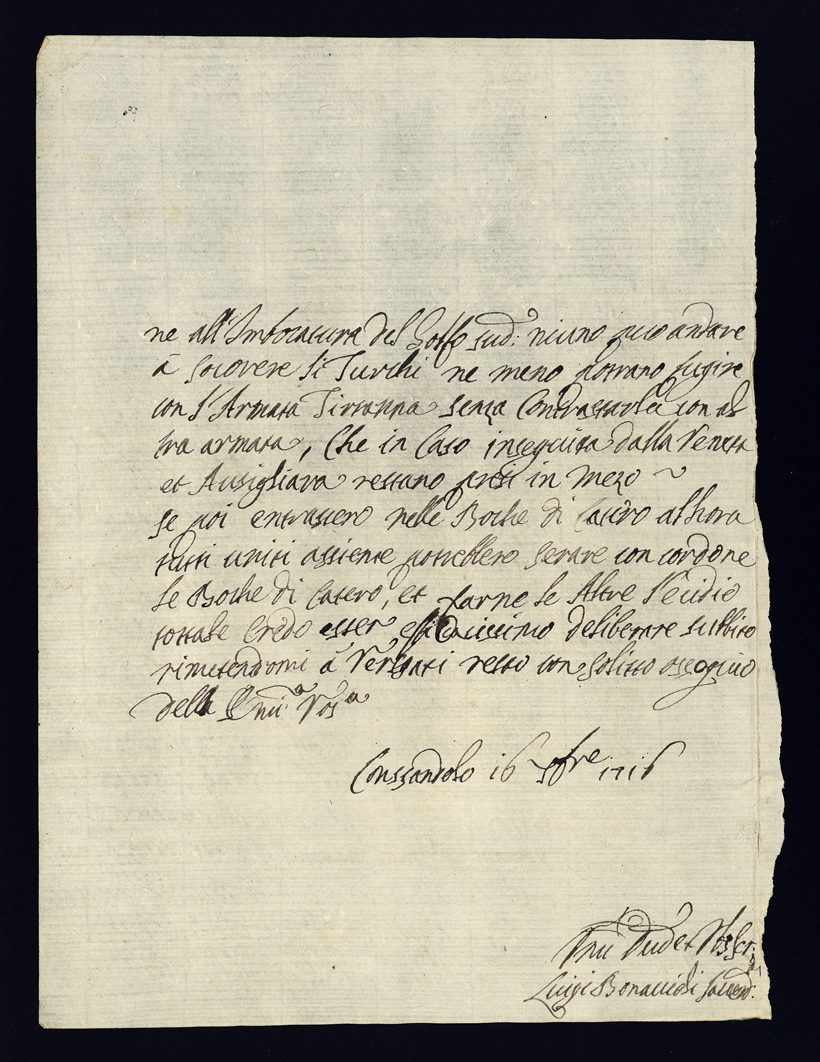 ne all'Imbocatura del Golfo sud: niuno può andare
à socorere li Turchi ne meno potrano fugire
con l'Armata Tiranna senza Contrastarla con al
tra armata, Che in Caso inseguita dalla Veneta
et Ausigliara restano presi in mezo
se poi entrassero nelle Boche di Cataro alhora
tutti uniti assieme potrebbero serare con cordone
le Boche di Cataro, et farne le Altre l'ecidio
tottale Credo esser eficacissimo deliberare subbito
rimetendomi à resto con solitto ossequio
della
Conssandolo 16 1716
Luigi Bonacioli